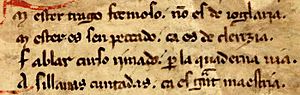 M ester trago fermoso. no es de ioglaria.
M ester es sen peccado. ca es de clerezia.
F ablar curso rimado. per la quaderna uia.
A sillauas cuntadas. ca es grant maestria.